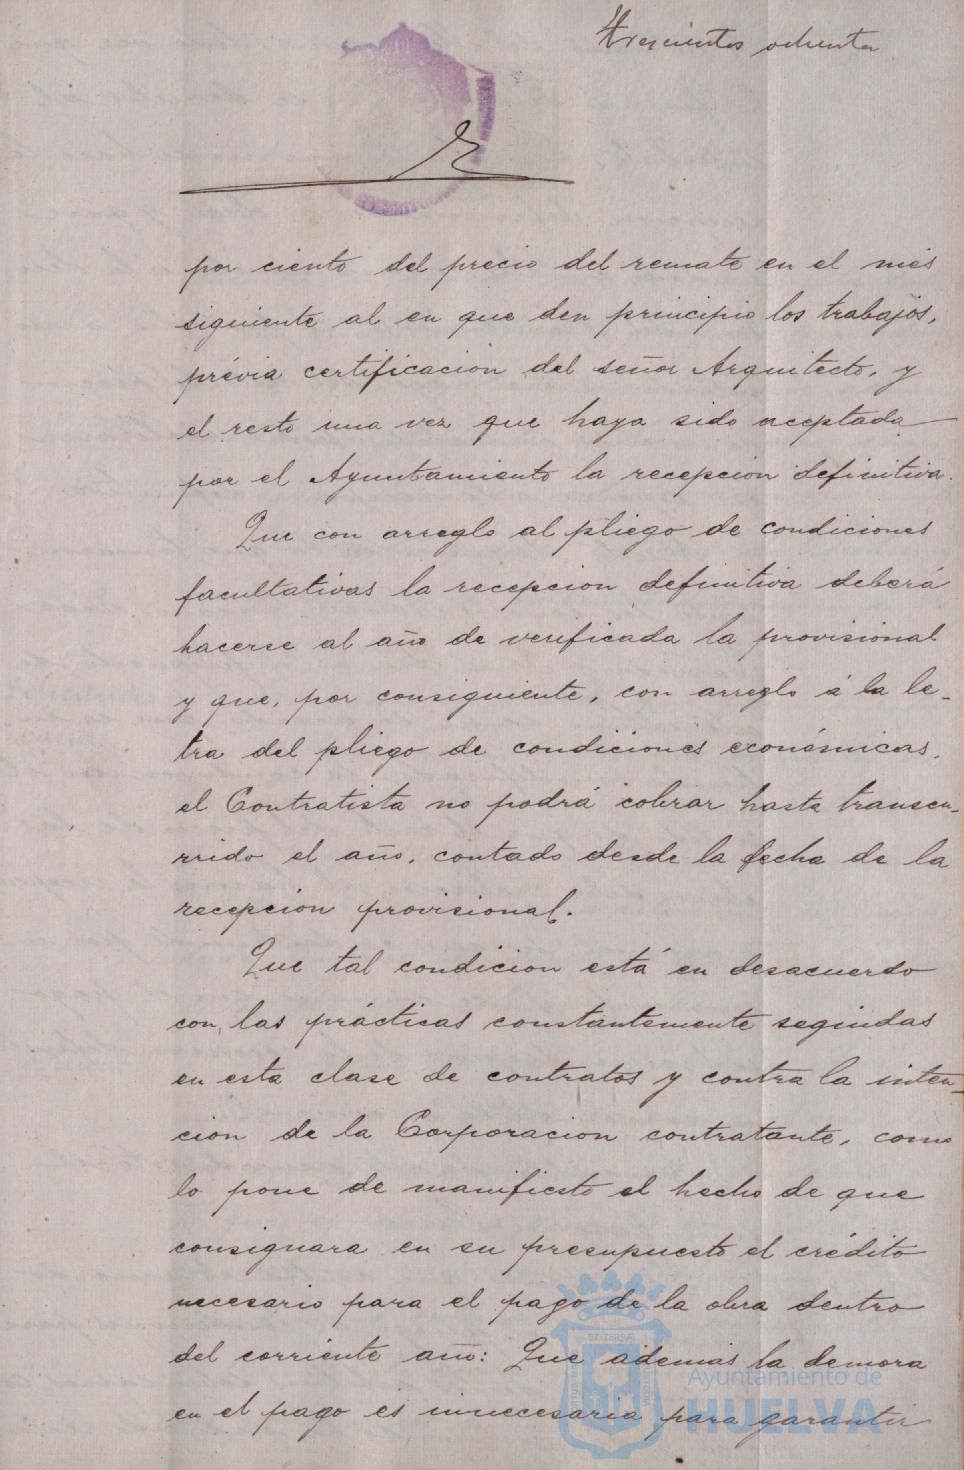 Trescientos ochenta
por ciento del precio del remate en el mes
siguiente al en que den principio los trabajos,
prévia certificacion del señor Arquitecto, y
el resto una vez que haya sido aceptada
por el Ayuntamiento la recepcion definitiva.
Que con arreglo al pliego de condiciones
facultativas la recepcion definitiva deberá
hacerse al año de verificada la provisional
y que, por consiguiente, con arreglo á la le-
tra del pliego de condiciones económicas,
el Contratista no podrá cobrar hasta transcu-
rrido el año, contado desde la fecha de la
recepcion provisional.
Que tal condicion está en desacuerdo
con las prácticas constantemente seguidas
en esta clase de contratos y contra la inten-
cion de la Corporacion contratante, como
lo pone de manifiesto el hecho de que
consignara en su presupuesto el crédito
necesario para el pago de la obra dentro
del corriente año: Que además la demora
en el pago es innecesaria para garantir
Ayuntamiento de
HUELVA